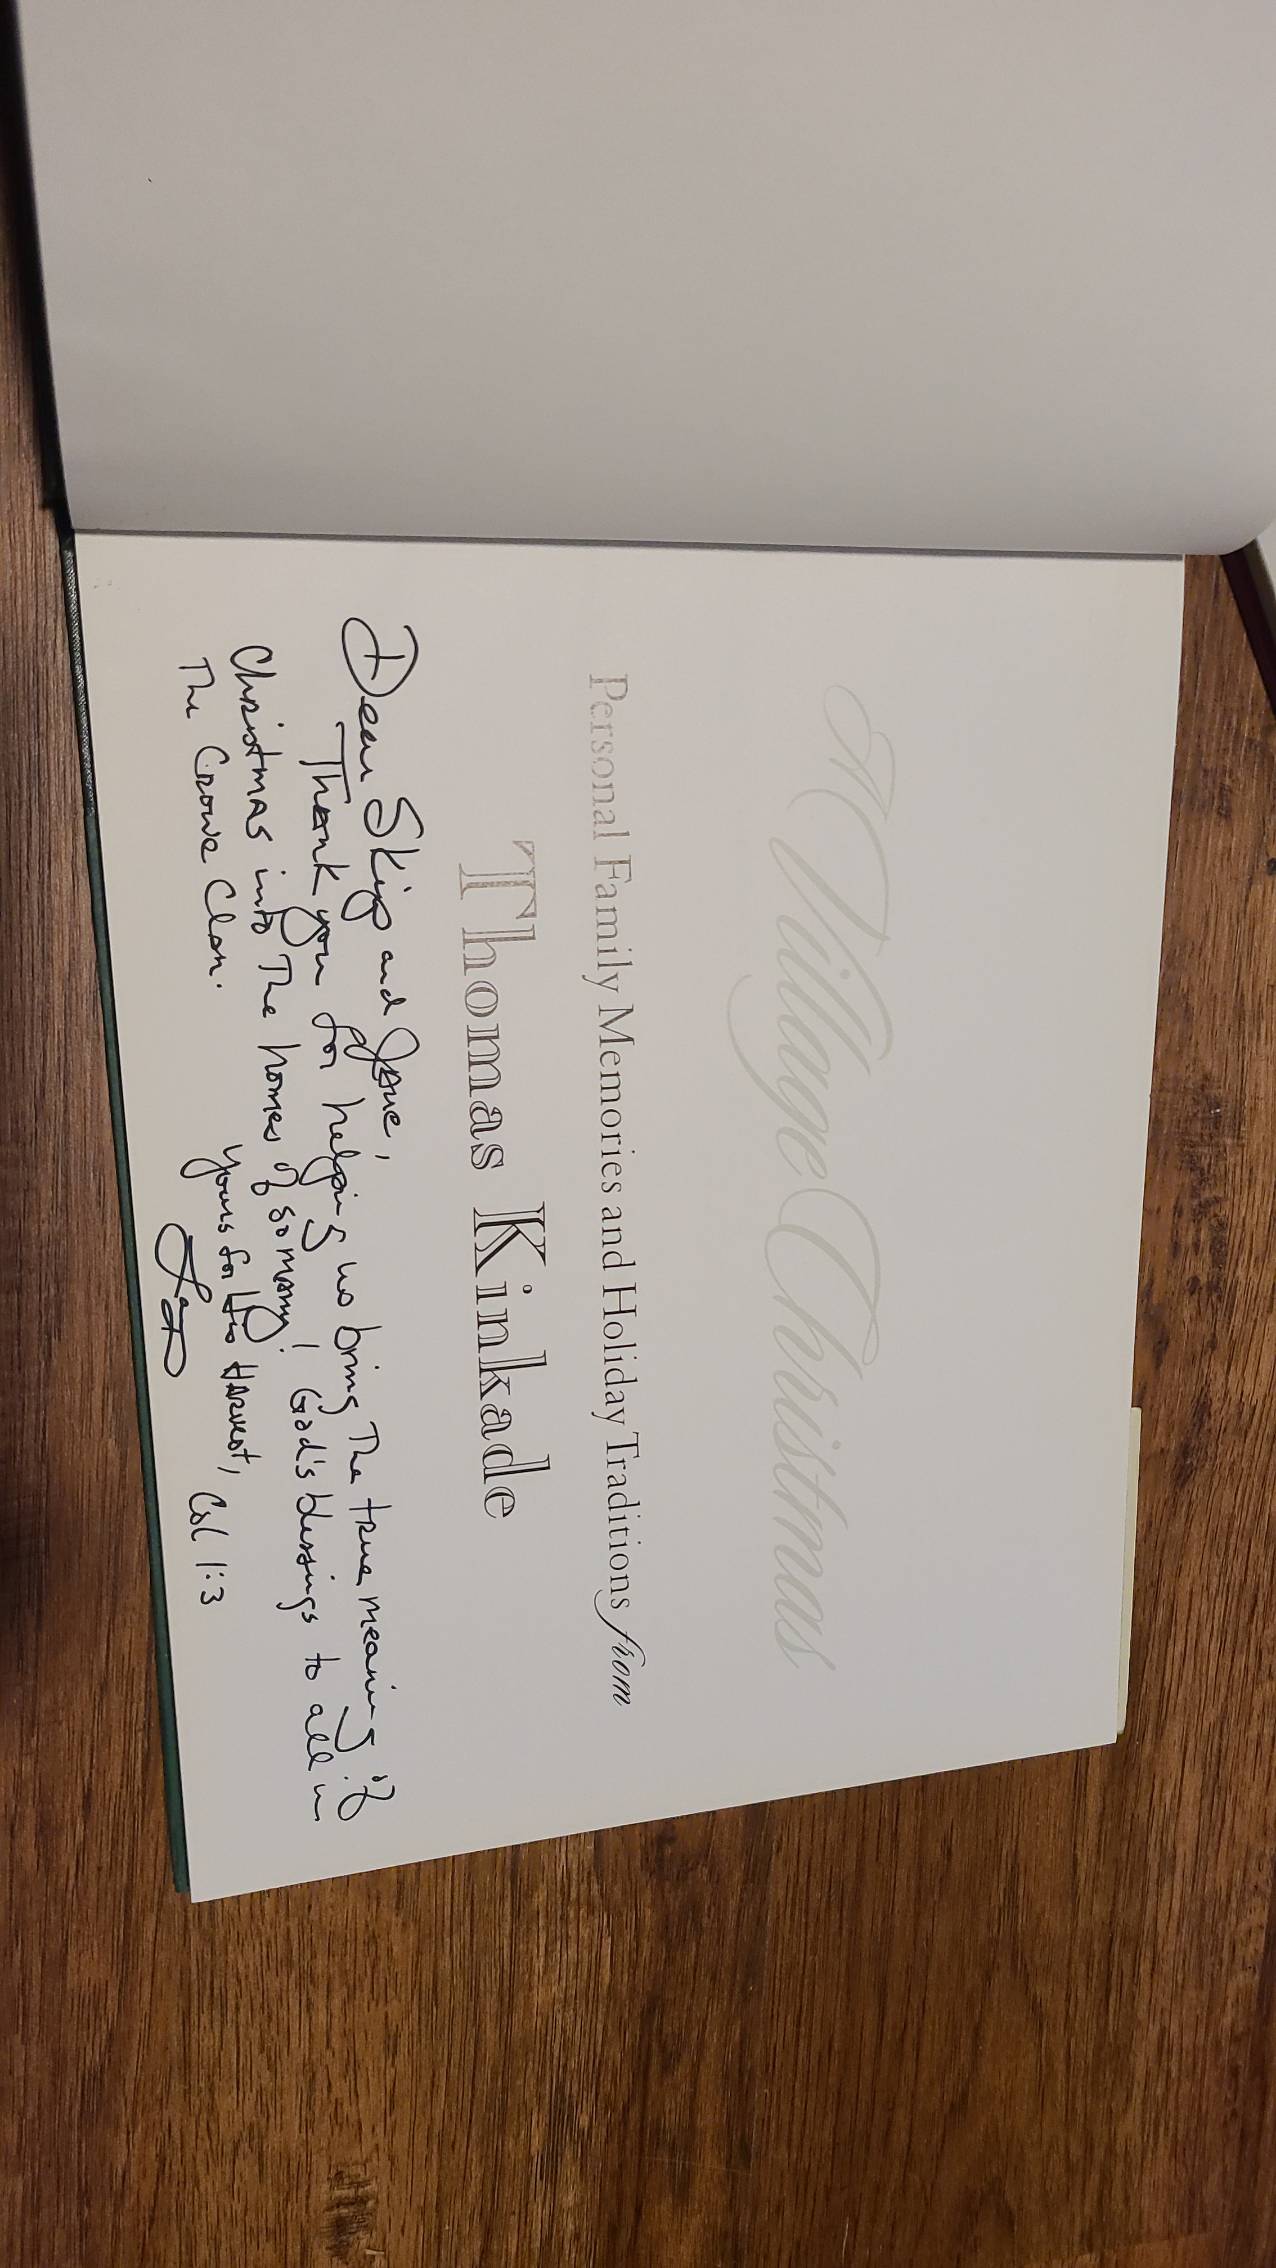 A Village Christmas
Personal Family Memories and Holiday Traditions from
Thomas Kinkade
Dear Skip and Jane,
Thank you for helping us bring The true meaning of
Christmas into The homes of so many! God's blessings to all in
The Crowe Clan.
Yours for His Harvest,
Col 1:3